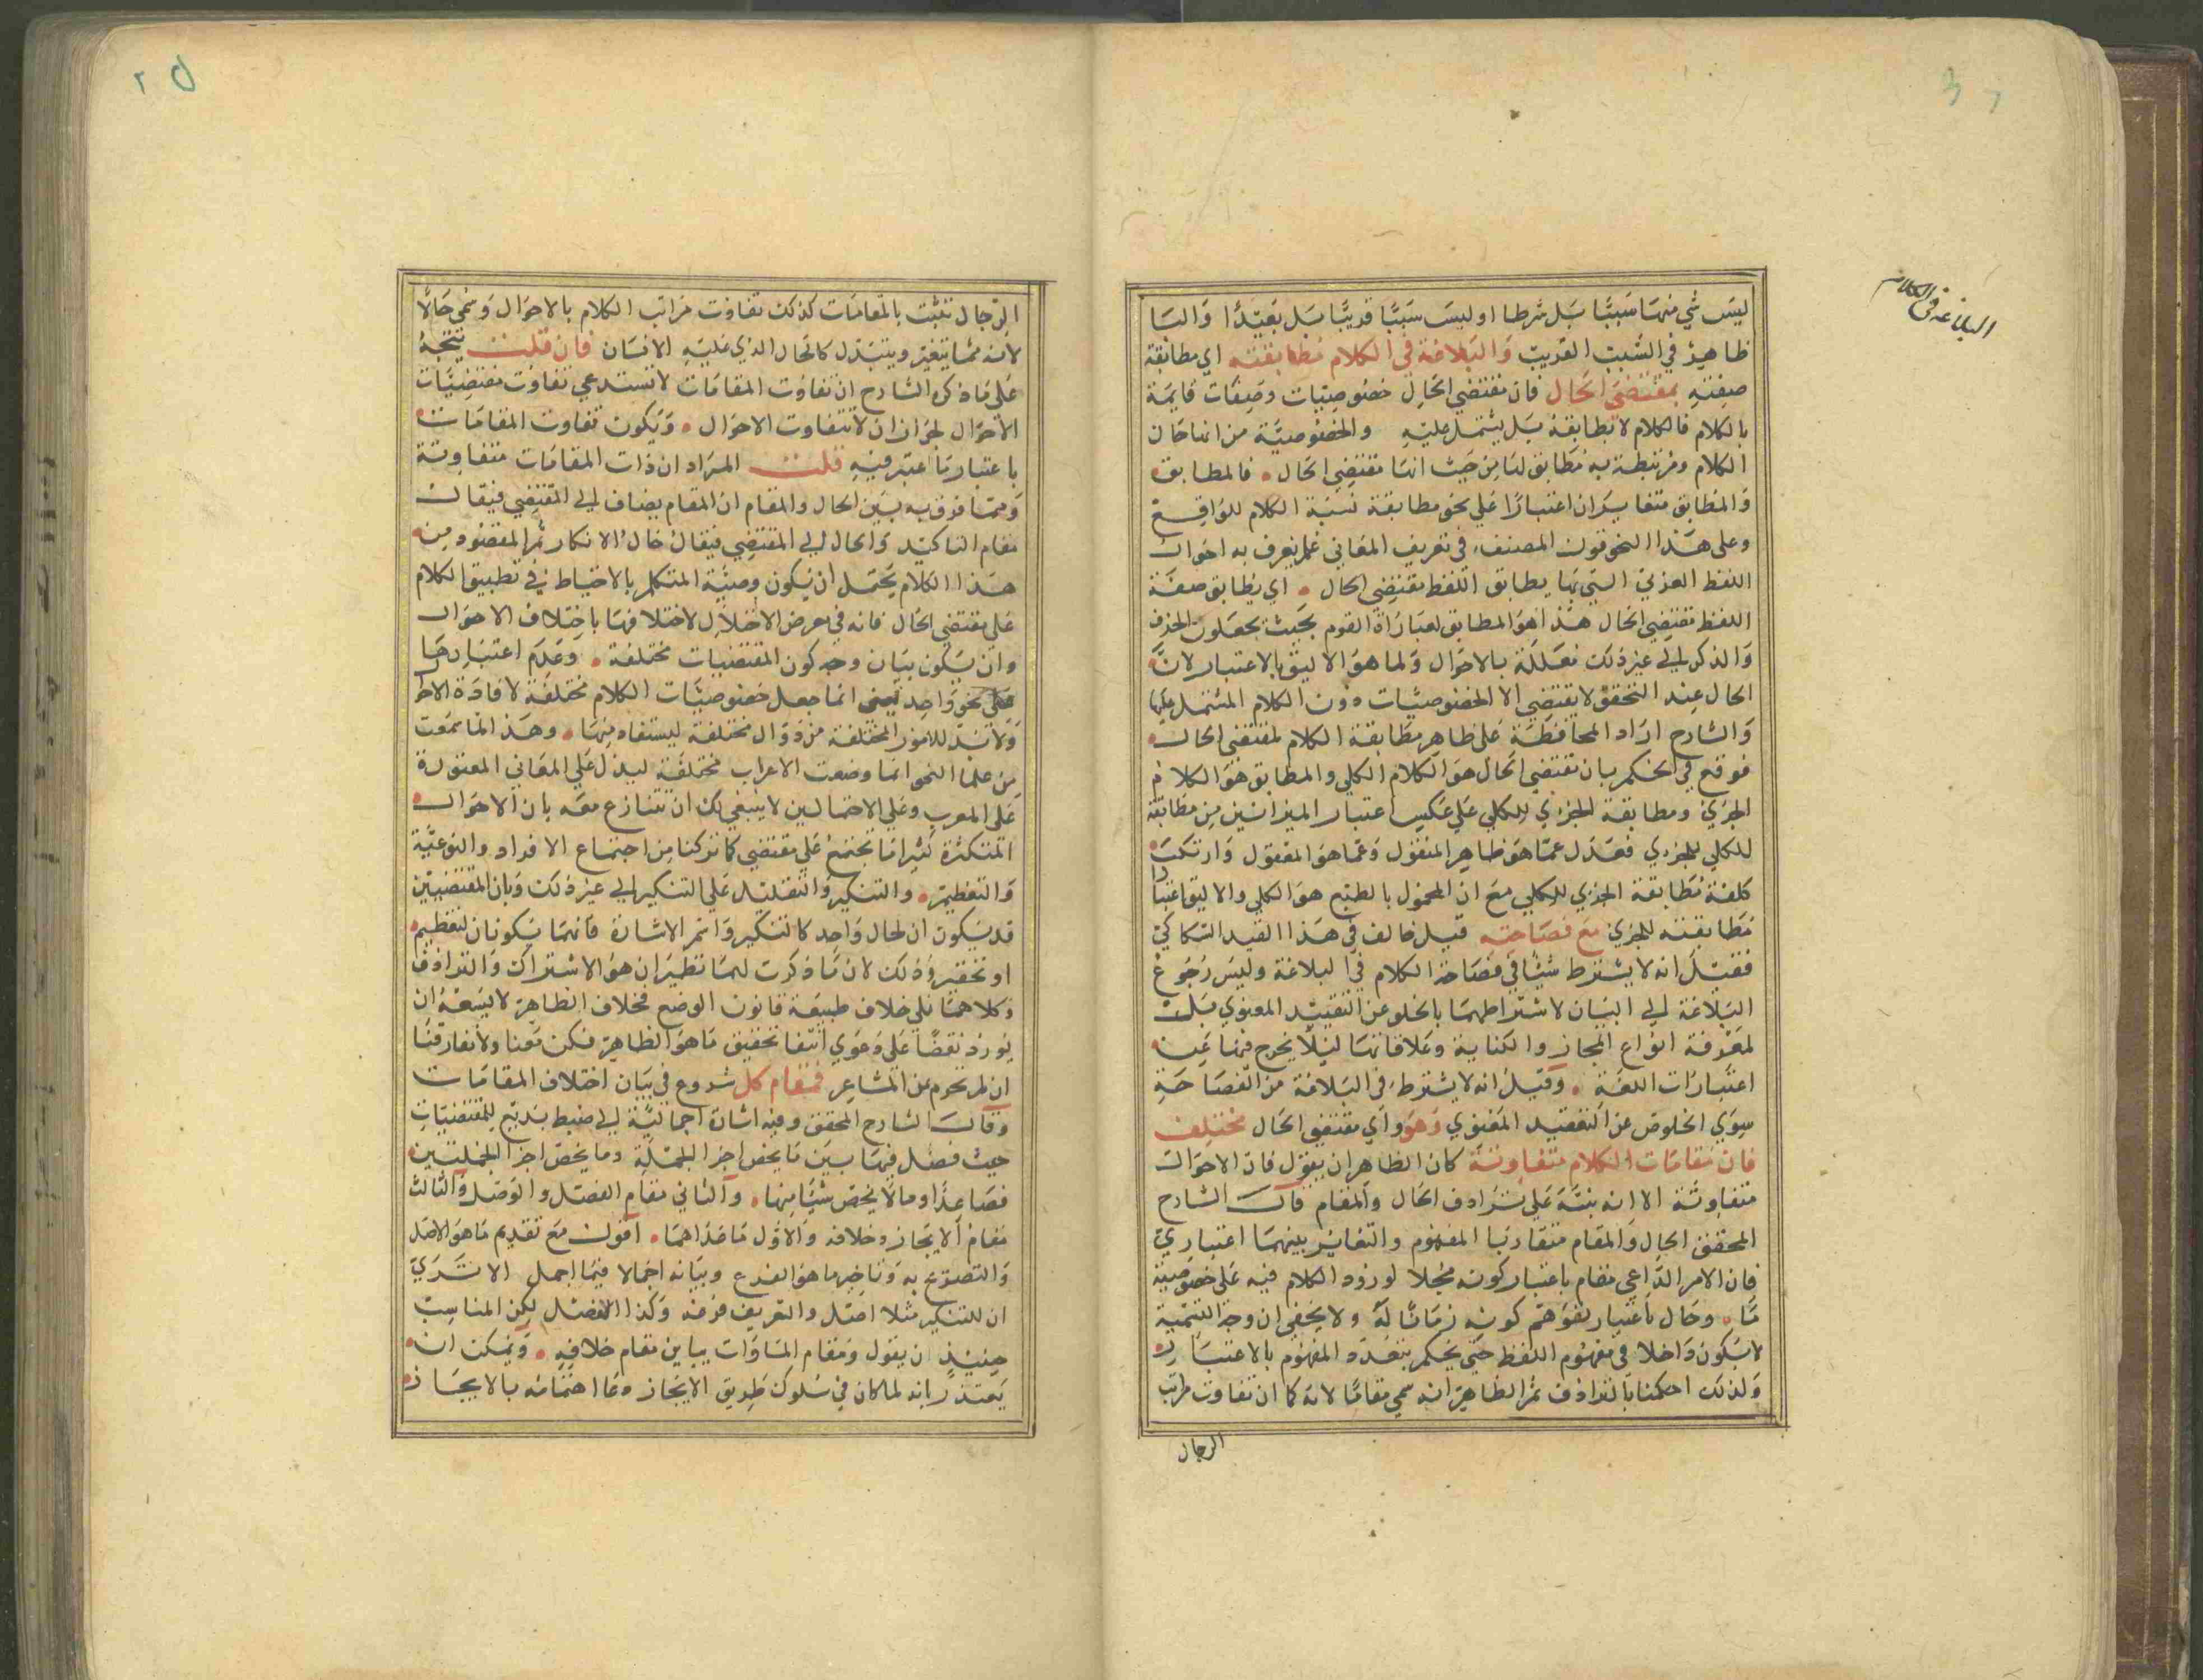 البلاغة في الكلام
ليس شي منهما سببا بل شرطا او ليس سببا قريبا بل بعيدا والبا
ظاهر في السبب القريب والبلاغة في الكلام مطابقته اي مطابقة
صفته بمقتضى الحال فان مقتضي الحال خصوصيات وصفات قايمة
بالكلام فالكلام لا يطابقه بل يشتمل عليه والخصوصية من انها حال
الكلام ومرتبطة به مطابق لها من حيث انها مقتضي الحال فالمطابق
والمطابق متغايران اعتبارا علي نحو مطابقة نسبة الكلام للواقع
وعلى هذا النحو قول المصنف في تعريف المعاني علم يعرف به احوال
اللفظ العربي التي بها يطابق اللفظ مقتضي الحال اي يطابق صفة
اللفظ مقتضي الحال هذا هو المطابق لعبارات القوم بحيث يجعلون الحذف
والذكر الي غير ذلك معللة بالاحوال ولما هو الاليق بالاعتبار لان
الحال عند التحقق لا يقتضي الا الخصوصيات دون الكلام المشتمل عليها
والشارح اراد المحافظة على ظاهر مطابقة الكلام لمقتضى الحال
فوقع في الحكم بان مقتضي الحال هو الكلام الكلي والمطابق هو الكلام
الجزي ومطابقة الجزي للكلي علي عكس اعتبار الميزانيين من مطابقة
للكلي للجزي فعدل عما هو ظاهر المنقول وعما هو المعقول وارتكب
كلفة مطابقة الجزي للكلي مع ان المحمول بالطبع هو الكلي والاليق اعتبار
مطابقته للجزي مع فصاحته قيل خالف في هذا القيد السكاكي
فقيل انه لا يشترط شيئا في فصاحة الكلام في البلاغة وليس رجوع
البلاغة الي البيان لاشتراطهما بالخلو عن التعقيد المعنوي بل
لمعرفة انواع المجاز والكناية وعلاقاتها ليلا يخرج فيها عن
اعتبارات اللغة وقيل انه لا يشترط في البلاغة من الفصاحة
سوي الخلوص عن التعقيد المعنوي وهو اي مقتضي الحال مختلف
فان مقامات الكلام متفاوتة كان الظاهر ان يقول فان الاحوال
متفاوتة الا انه نبه علي ترادف الحال والمقام قال الشارح
المحقق الحال والمقام متقاربا المفهوم والتغاير بينهما اعتباري
فان الامر الداعي مقام باعتبار كونه محلا لورود الكلام فيه على خصوصية
ما وحال باعتبار توهم كونه زمانا له ولا يخفي ان وجه التسمية
لا يكون داخلا في مفهوم اللفظ حتي يحكم بتعدد المفهوم بالاعتبار
ولذلك احكمنا بالترادف ثم الظاهر انه سمي مقاما لانه كما ان تفاوت مراتب
الرجال
الرجال تثبت بالمقامات كذلك تفاوت مراتب الكلام بالاحوال وسمى حالا
لانه مما يتغير ويتبدل كالحال الذي عليه الانسان فان قلت يتجه
على ما ذكره الشارح ان تفاوت المقامات لا تستدعي تفاوت مقتضيات
الاحوال لجواز ان لا تتفاوت الاحوال ويكون تفاوت المقامات
باعتبار ما اعتبر فيه قلت المراد ان ذات المقامات متفاوتة
ومما فرق به بين الحال والمقام ان المقام يضاف الي المقتضي فيقال
مقام التاكيد والحال الي المقتضي فيقال حال الانكار ثم المقصود من
هذا الكلام يحتمل ان يكون وصية المتكلم بالاحتياط في تطبيق الكلام
على مقتضي الحال فانه في معرض الاختلال لاختلافها باختلاف الاحوال
وان يكون بيان وجه كون المقتضيات مختلفة وعدم اعتبارها
على نحو واحد يعني انما جعل خصوصيات الكلام مختلفة لافادة الاحوا
ولا بد للامور المختلفة من دوال مختلفة ليستفاد منها وهذا لما سمعت
من علما النحو انما وضعت الاعراب مختلفة ليدل علي المعاني المعتورة
على المعرب وعلي الاحتمالين لا ينبغي لك ان تتنازع معه بان الاحوال
المتكثرة كثيرا ما تجتمع علي مقتضي كما تركنا من اجتماع الافراد والنوعية
والتعظيم والتنكير والتقليل علي التنكير الي غير ذلك وبان المقتضيين
قد يكون ان لحال واحد كالتنكير واسم الاشارة فانهما يكونان لتعظيم
او تحقير وذلك لان ما ذكرت لهما نظيران هو الاشتراك والترادف
وكلاهما علي خلاف طبيعة قانون الوضع فخلاف الظاهر لا يسعه ان
يورد نقضا على دعوي انتفا تحقيق ما هو الظاهر فكن معنا ولا تفارقنا
ان لم تحرم عن المشاعر فمقام كل شروع في بيان اختلاف المقامات
وقال الشارح المحقق وفيه اشارة اجمالية الي ضبط بديع للمقتضيات
حيث فصل فيها بين ما يخص اجزا الجملة وما يخص اجزا الجملتين
فصاعدا وما لا يخص شيئا منها والثاني مقام الفصل والوصل والثالث
مقام الايجاز وخلافه والاول ما عداهما اقول مع تقديم ما هو الاصل
والتصريح به وتاخير ما هو الفرع وبيانه اجمالا فيما اجمل الا تري
ان للتنكير مثلا اصل والتعريف فرعه وكذا الفصل لكن المناسب
حينيذ ان يقول ومقام المساوات يباين مقام خلافه ويمكن ان
يعتذر انه لما كان في سلوك طريق الايجاز وعا اهتمامه بالايجاز